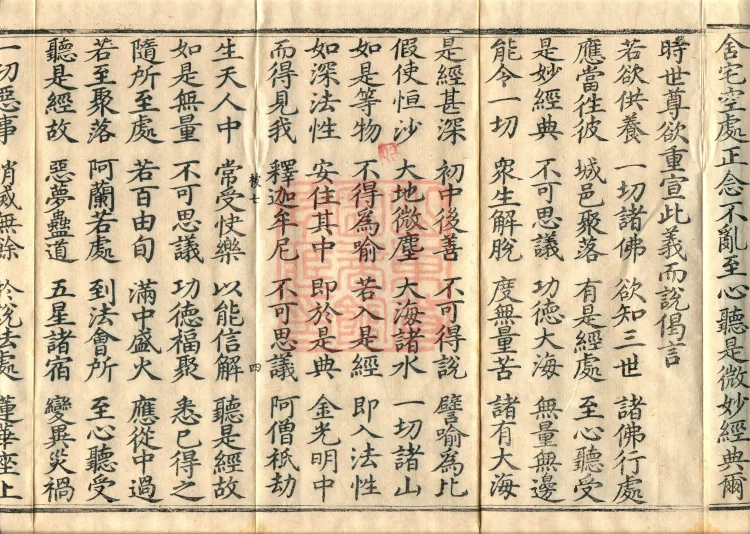 舍宅空處正念不亂至心聽是微妙經典爾
時世尊欲重宣此義而說偈言
若欲供養 一切諸佛 欲知三世 諸佛行處
應當往彼 城邑聚落 有是經處 至心聽受
是妙經典 不可思議 功德大海 無量無邊
能令一切 衆生解脫 度無量苦 諸有大海
是經甚深 初中後善 不可得說 譬喻為比
假使恒沙 大地微塵 大海諸水 一切諸山
如是等物 不得為喻 若入是經 即入法性
如深法性 安住其中 即於是典 金光明中
而得見我 釋迦牟尼 不可思議 阿僧祇劫
生天人中 常受快樂 以能信解 聽是經故
如是無量 不可思議 功德福聚 悉已得之
隨所至處 若百由旬 滿中盛火 應從中過
若至聚落 阿蘭若處 到法會所 至心聽受
聽是經故 惡夢蠱道 五星諸宿 變異災禍
一切惡事 消滅無餘 於說法處 蓮華座上